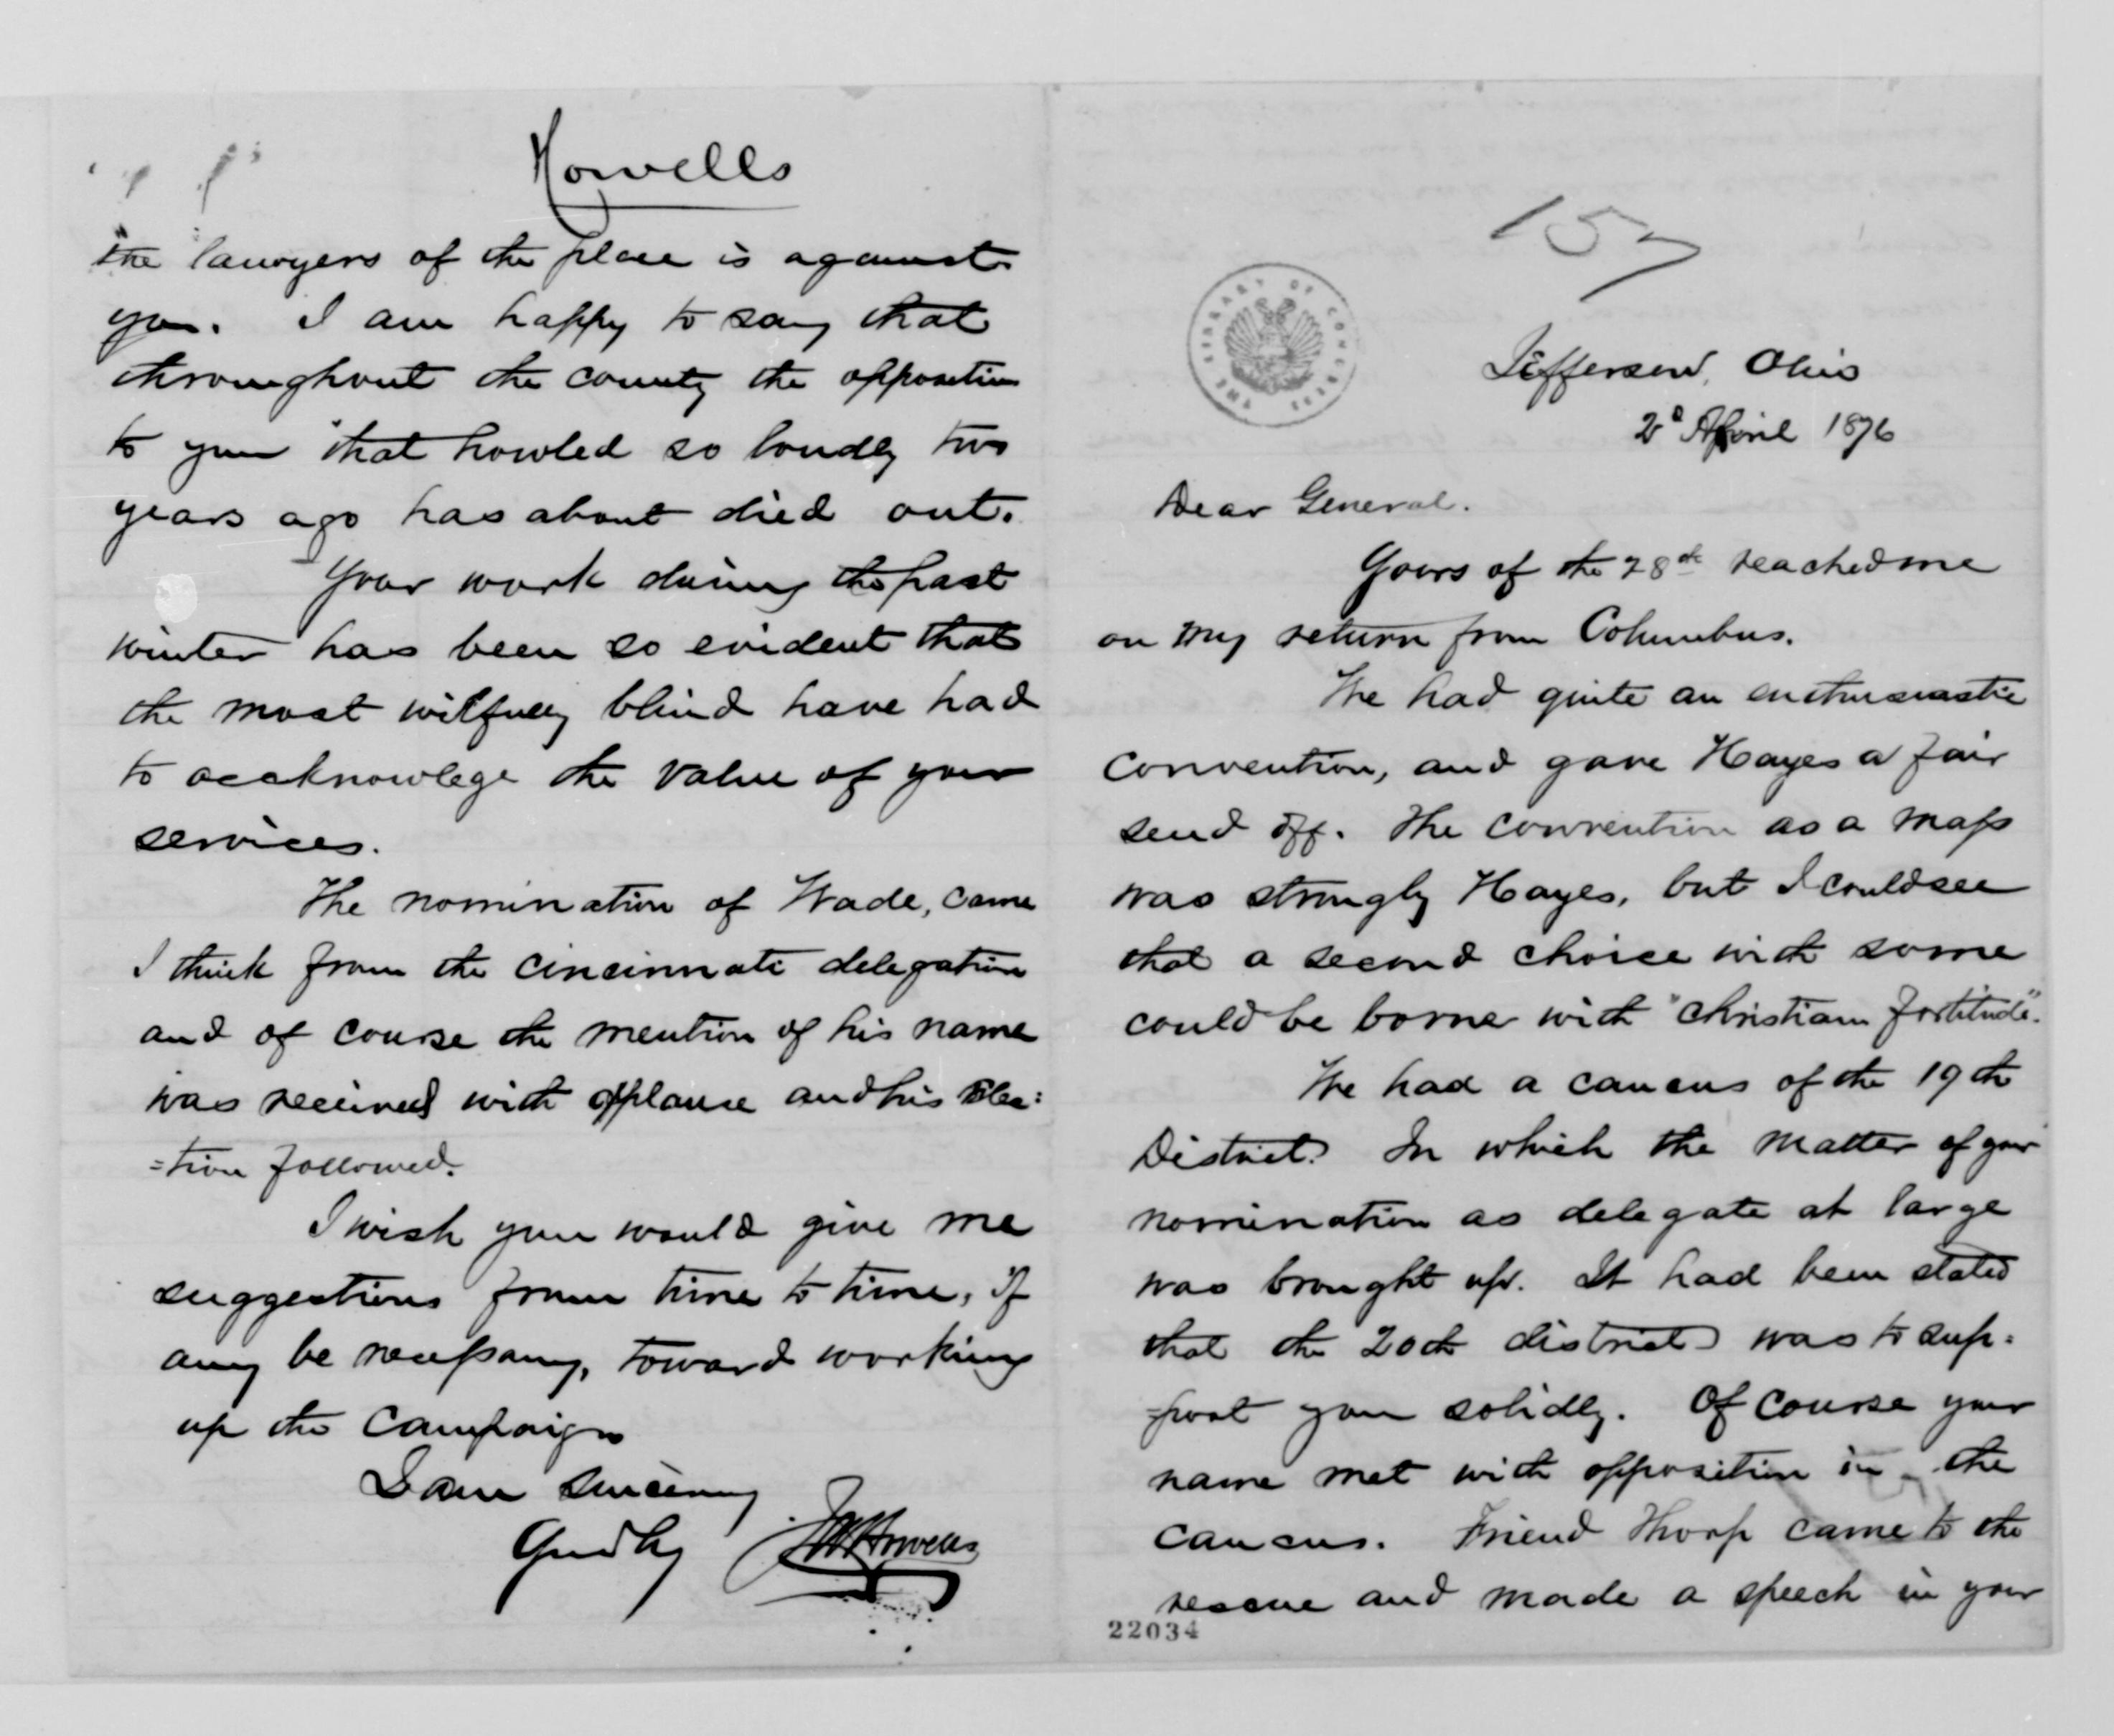 Howells
the lawyers of the place is against
you. I am happy to say that
throughout the county the opposition
to you that howled so loudly two
years ago has about died out.
Your work during the past
winter has been so evident that
the most wilfully blind have had
to accknowlege the value of your
services.
The nomination of Wade, came
I think from the Cincinnati delegation
and of course the mention of his name
was received with applause and his elec=
=tion followed.
I wish you would give me
suggestions from time to time, if
any be necessary, toward working
up the campaign
I am sincerely
Goodby JAHowells
157
THE LIBRARY OF CONGRESS
Jefferson, Ohio
2d April 1876
Dear General.
Yours of the 28th reached me
on my return from Columbus.
We had quite an enthusiastic
convention, and gave Hayes a fair
send off. The convention as a mass
was strongly Hayes, but I could see
that a second choice with some
could be borne with "Christian fortitude".
We had a caucus of the 19th
District. In which the matter of your
nomination as delegate at large
was brought up. It had been stated
that the 20th district was to sup=
=port you solidly. Of course your
name met with opposition in the
caucus. Friend Thorp came to the
rescue and made a speech in your
22034